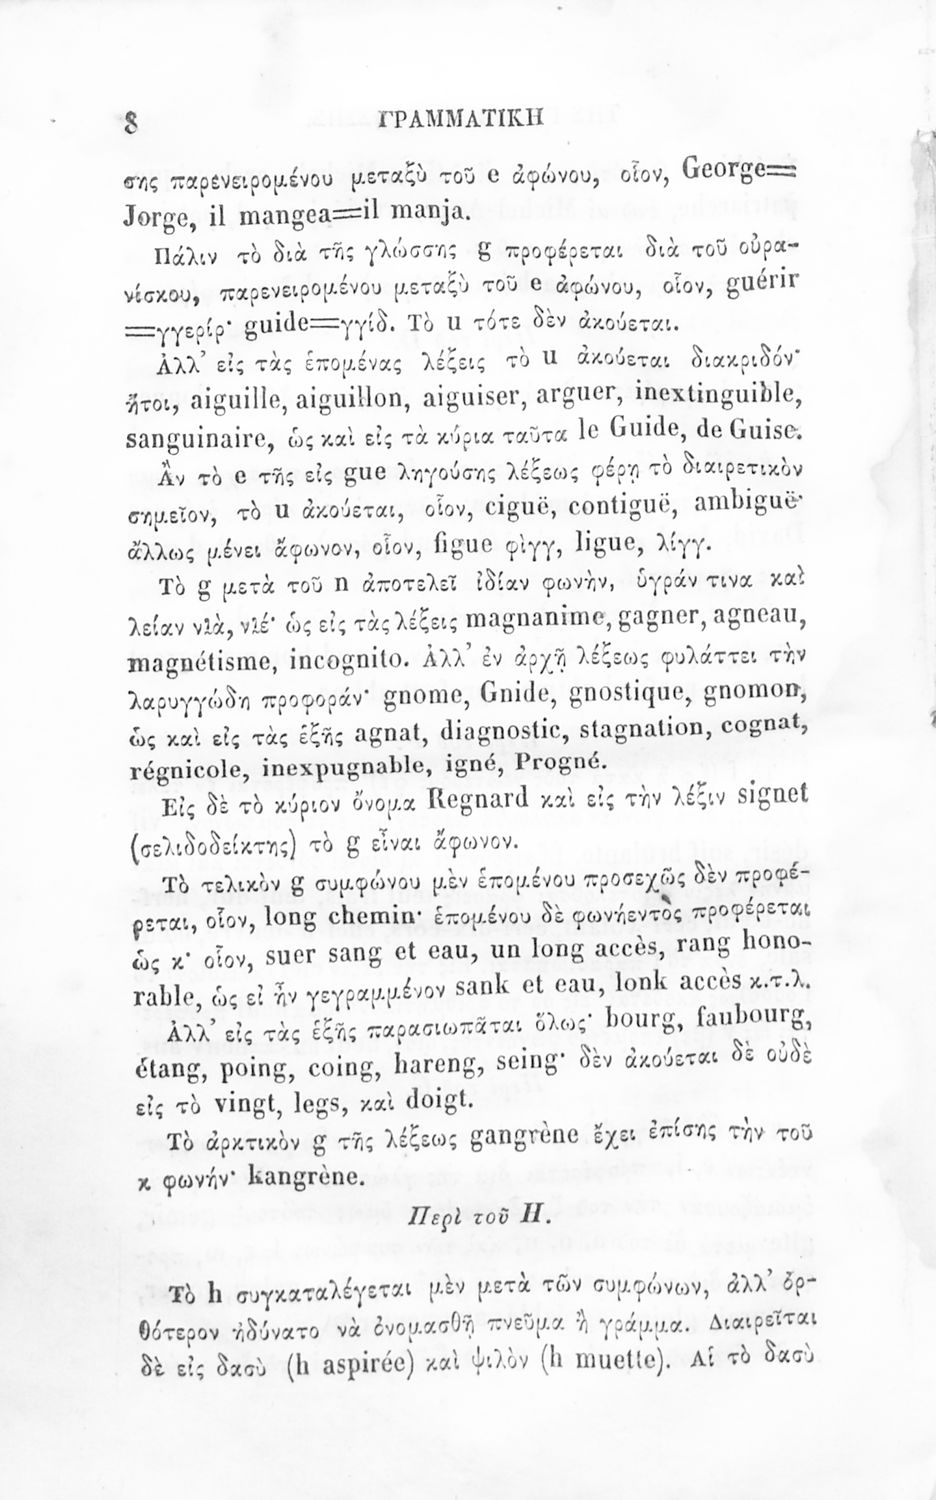 8 ΓΡΑΜΜΑΤΙΚΗ
σης παρενειρομένου μεταξὺ τοῦ e ἀφώνου, οἷον, George=
Jorge, il mangea=il manja.
Πάλιν τὸ διὰ τῆς γλώσσης g προφέρεται διὰ τοῦ οὐρα-
νίσκου, παρενειρομένου μεταξὺ τοῦ e ἀφώνου, οἷον, guérir
=γγερίρ· guide=γγίδ. Τὸ u τότε δὲν ἀκούεται.
Ἀλλ’ εἰς τὰς ἑπομένας λέξεις τὸ u ἀκούεται διακριδόν·
ἤτοι, aiguille, aiguillon, aiguiser, arguer, inextinguible,
sanguinaire, ὡς καὶ εἰς τὰ κύρια ταῦτα le Guide, de Guise.
Ἂν τὸ e τῆς εἰς gue ληγούσης λέξεως φέρῃ τὸ διαιρετικὸν
σημεῖον, τὸ u ἀκούεται, οἷον, ciguë, contiguë, ambiguë·
ἄλλως μένει ἄφωνον, οἷον, figue φὶγγ, ligue, λίγγ.
Τὸ g μετὰ τοῦ n ἀποτελεῖ ἰδίαν φωνὴν, ὑγράν τινα καὶ
λείαν νιὰ, νιέ· ὡς εἰς τὰς λέξεις magnanime, gagner, agneau,
magnétisme, incognito. Ἀλλ’ ἐν ἀρχῇ λέξεως φυλάττει τὴν
λαρυγγώδη προφοράν· gnome, Gnide, gnostique, gnomon,
ὡς καὶ εἰς τὰς ἑξῆς agnat, diagnostic, stagnation, cognat,
régnicole, inexpugnable, igné, Progné.
Εἰς δὲ τὸ κύριον ὄνομα Regnard καὶ εἰς τὴν λέξιν signet
(σελιδοδείκτης) τὸ g εἶναι ἄφωνον.
Τὸ τελικὸν g συμφώνου μὲν ἑπομένου προσεχῶς δὲν προφέ-
ρεται, οἷον, long chemin· ἑπομένου δὲ φωνήεντὸς προφέρεται
ὡς κ· οἷον, suer sang et eau, un long accès, rang hono-
rable, ὡς εἰ ἦν γεγραμμένον sank et eau, lonk accès κ.τ.λ.
Ἀλλ’ εἰς τὰς ἑξῆς παρασιωπᾶται ὅλως· bourg, faubourg,
étang, poing, coing, hareng, seing· δὲν ἀκούεται δὲ οὐδὲ
εἰς τὸ vingt, legs, καὶ doigt.
Τὸ ἀρκτικὸν g τῆς λέξεως gangrène ἔχει ἐπίσης τὴν τοῦ
κ φωνήν· kangrène.
Περὶ τοῦ H.
Τὸ h συγκαταλέγεται μὲν μετὰ τῶν συμφώνων, ἀλλ’ ὀρ-
θότερον ἠδύνατο νὰ ὀνομασθῇ πνεῦμα ἢ γράμμα. Διαιρεῖται
δὲ εἰς δασὺ (h aspirée) καὶ ψιλὸν (h muette). Αἱ τὸ δασὺ